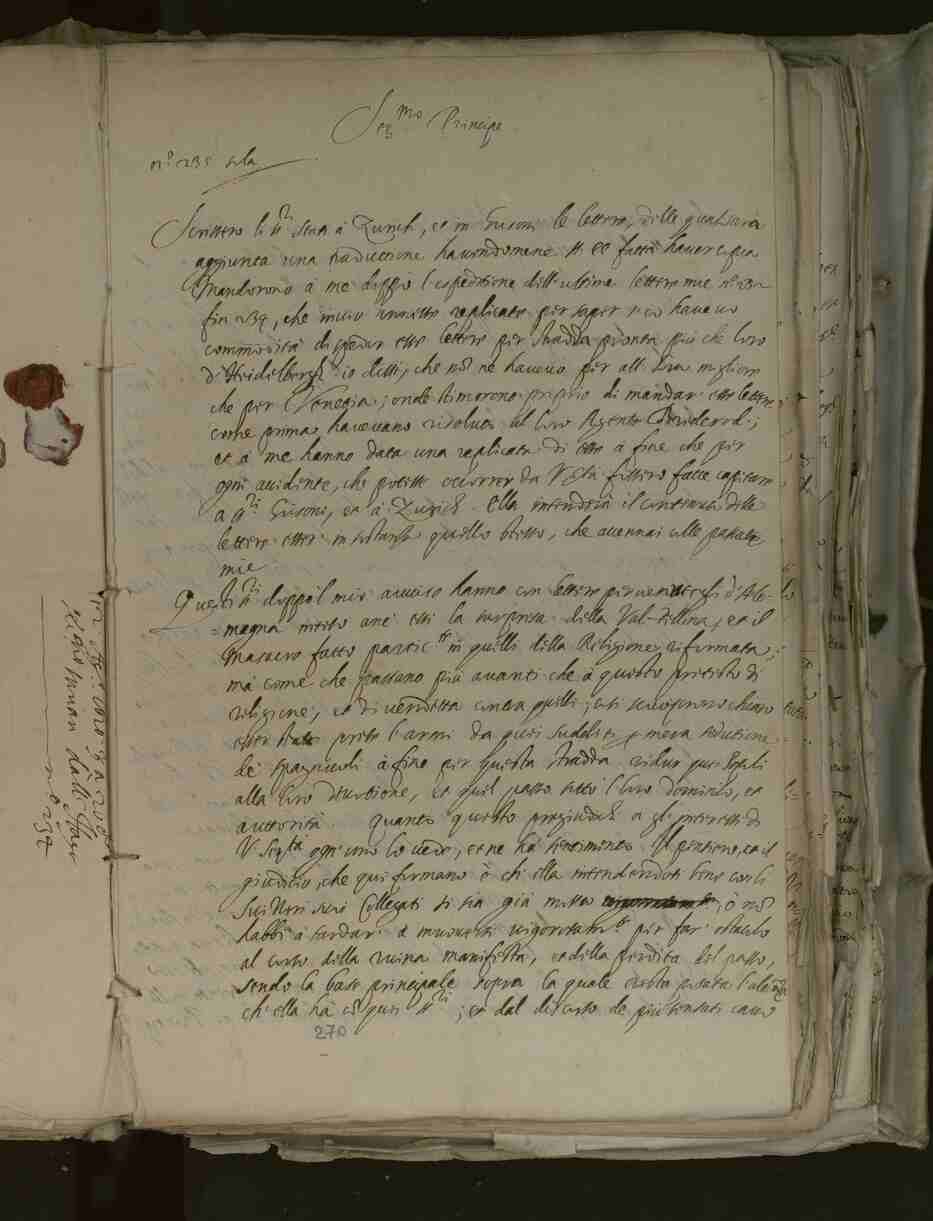 Ser.mo Principe
n.o 235 sola
Scrissero li ss.ri Stati à Zurich, et in Grisoni le lettere, delle quali sarà
aggiunta una traduttione havendomene ss. ee. fatta haver copia
Mandorono à me doppo l'espeditione dell'ultime lettere mie n.o 232
fin 234, che invio annesse replicate per saper se io havevo
commodità di spedir esse lettere per stradda pronta più che loro
d'Heidelbergh: io dissi, che nõ ne havevo per all'hora migliore
che per Venetia; onde stimorono proprio di mandar esse lettere
come prima havevano risoluto al loro Agente Brederod;
et à me hanno data una replicata di esse à fine che per
ogni accidente, che potesse occorrer da V. Ser.tà fossero fatte capitare
a ss.ri Grisoni, et à Zurich. Ella intenderà il continuto delle
lettere esser in sostanza quello stesso, che accennai alle passate
mie.
Questi ss.ri doppo'l mio avviso hanno con lettere pervenutegli d'Ale-
=magna inteso anc'essi la sorpresa della Val-Tellina, et il
massacro fatto partic.te in quelli della Religione riformata;
mà come che passano più avanti che à questo pretesto di
religione, et di vendetta contra quelli; così scuoprono chiaro
esser stato preso l'armi da quei sudditi per mera seduttione
de Spagnuoli à fine per questa stradda ridur quei Popoli
alla loro divotione, et quel passo sotto'l loro dominio, et
auttorità. quanto questo pregiudichi a gl'interessi di
V. Ser.tà ogn'uno lo vede, et ne hà sentimento. Il pensiero, et il
giuditio, che qui formano è ch'ella intendendosi bene con li
Suizzeri suoi Collegati si sia già mossa, ò nõ
habbi à tardar à muoversi vigorosam.te per far ostacolo
al corso della ruina manifesta, et della perdita del passo,
sendo la base principale sopra la quale resta posata l'aleãza
ch'ella hà cõ quei ss.ri; et dal discorso de più sensati cavo
270
n.o 234